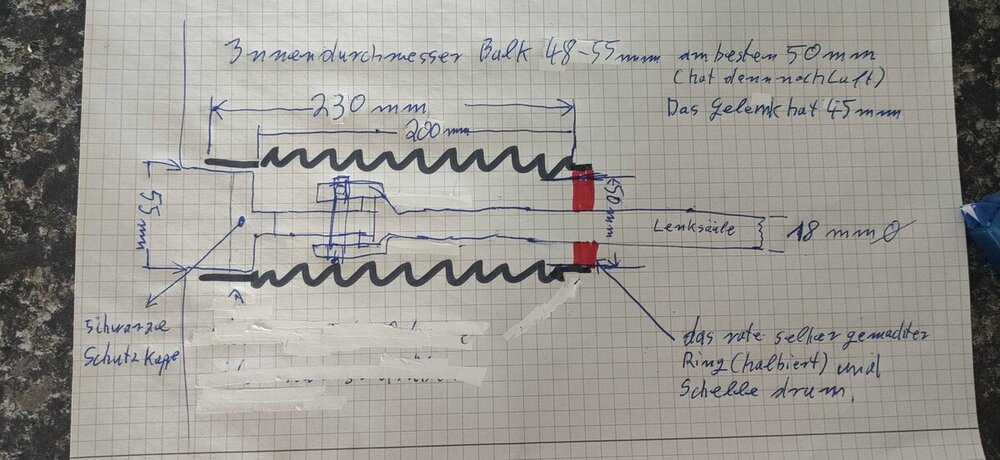 Innendurchmesser Balk 48-55mm am besten 50mm
(hat dann noch Luft)
Das Gelenk hat 45mm
230 mm
200 mm
55 mm
50 mm
Lenksäule
18 mm Ø
Schwarze
Schutzkappe
das rote selber gemachter
Ring (halbiert) und
Schelle drum.